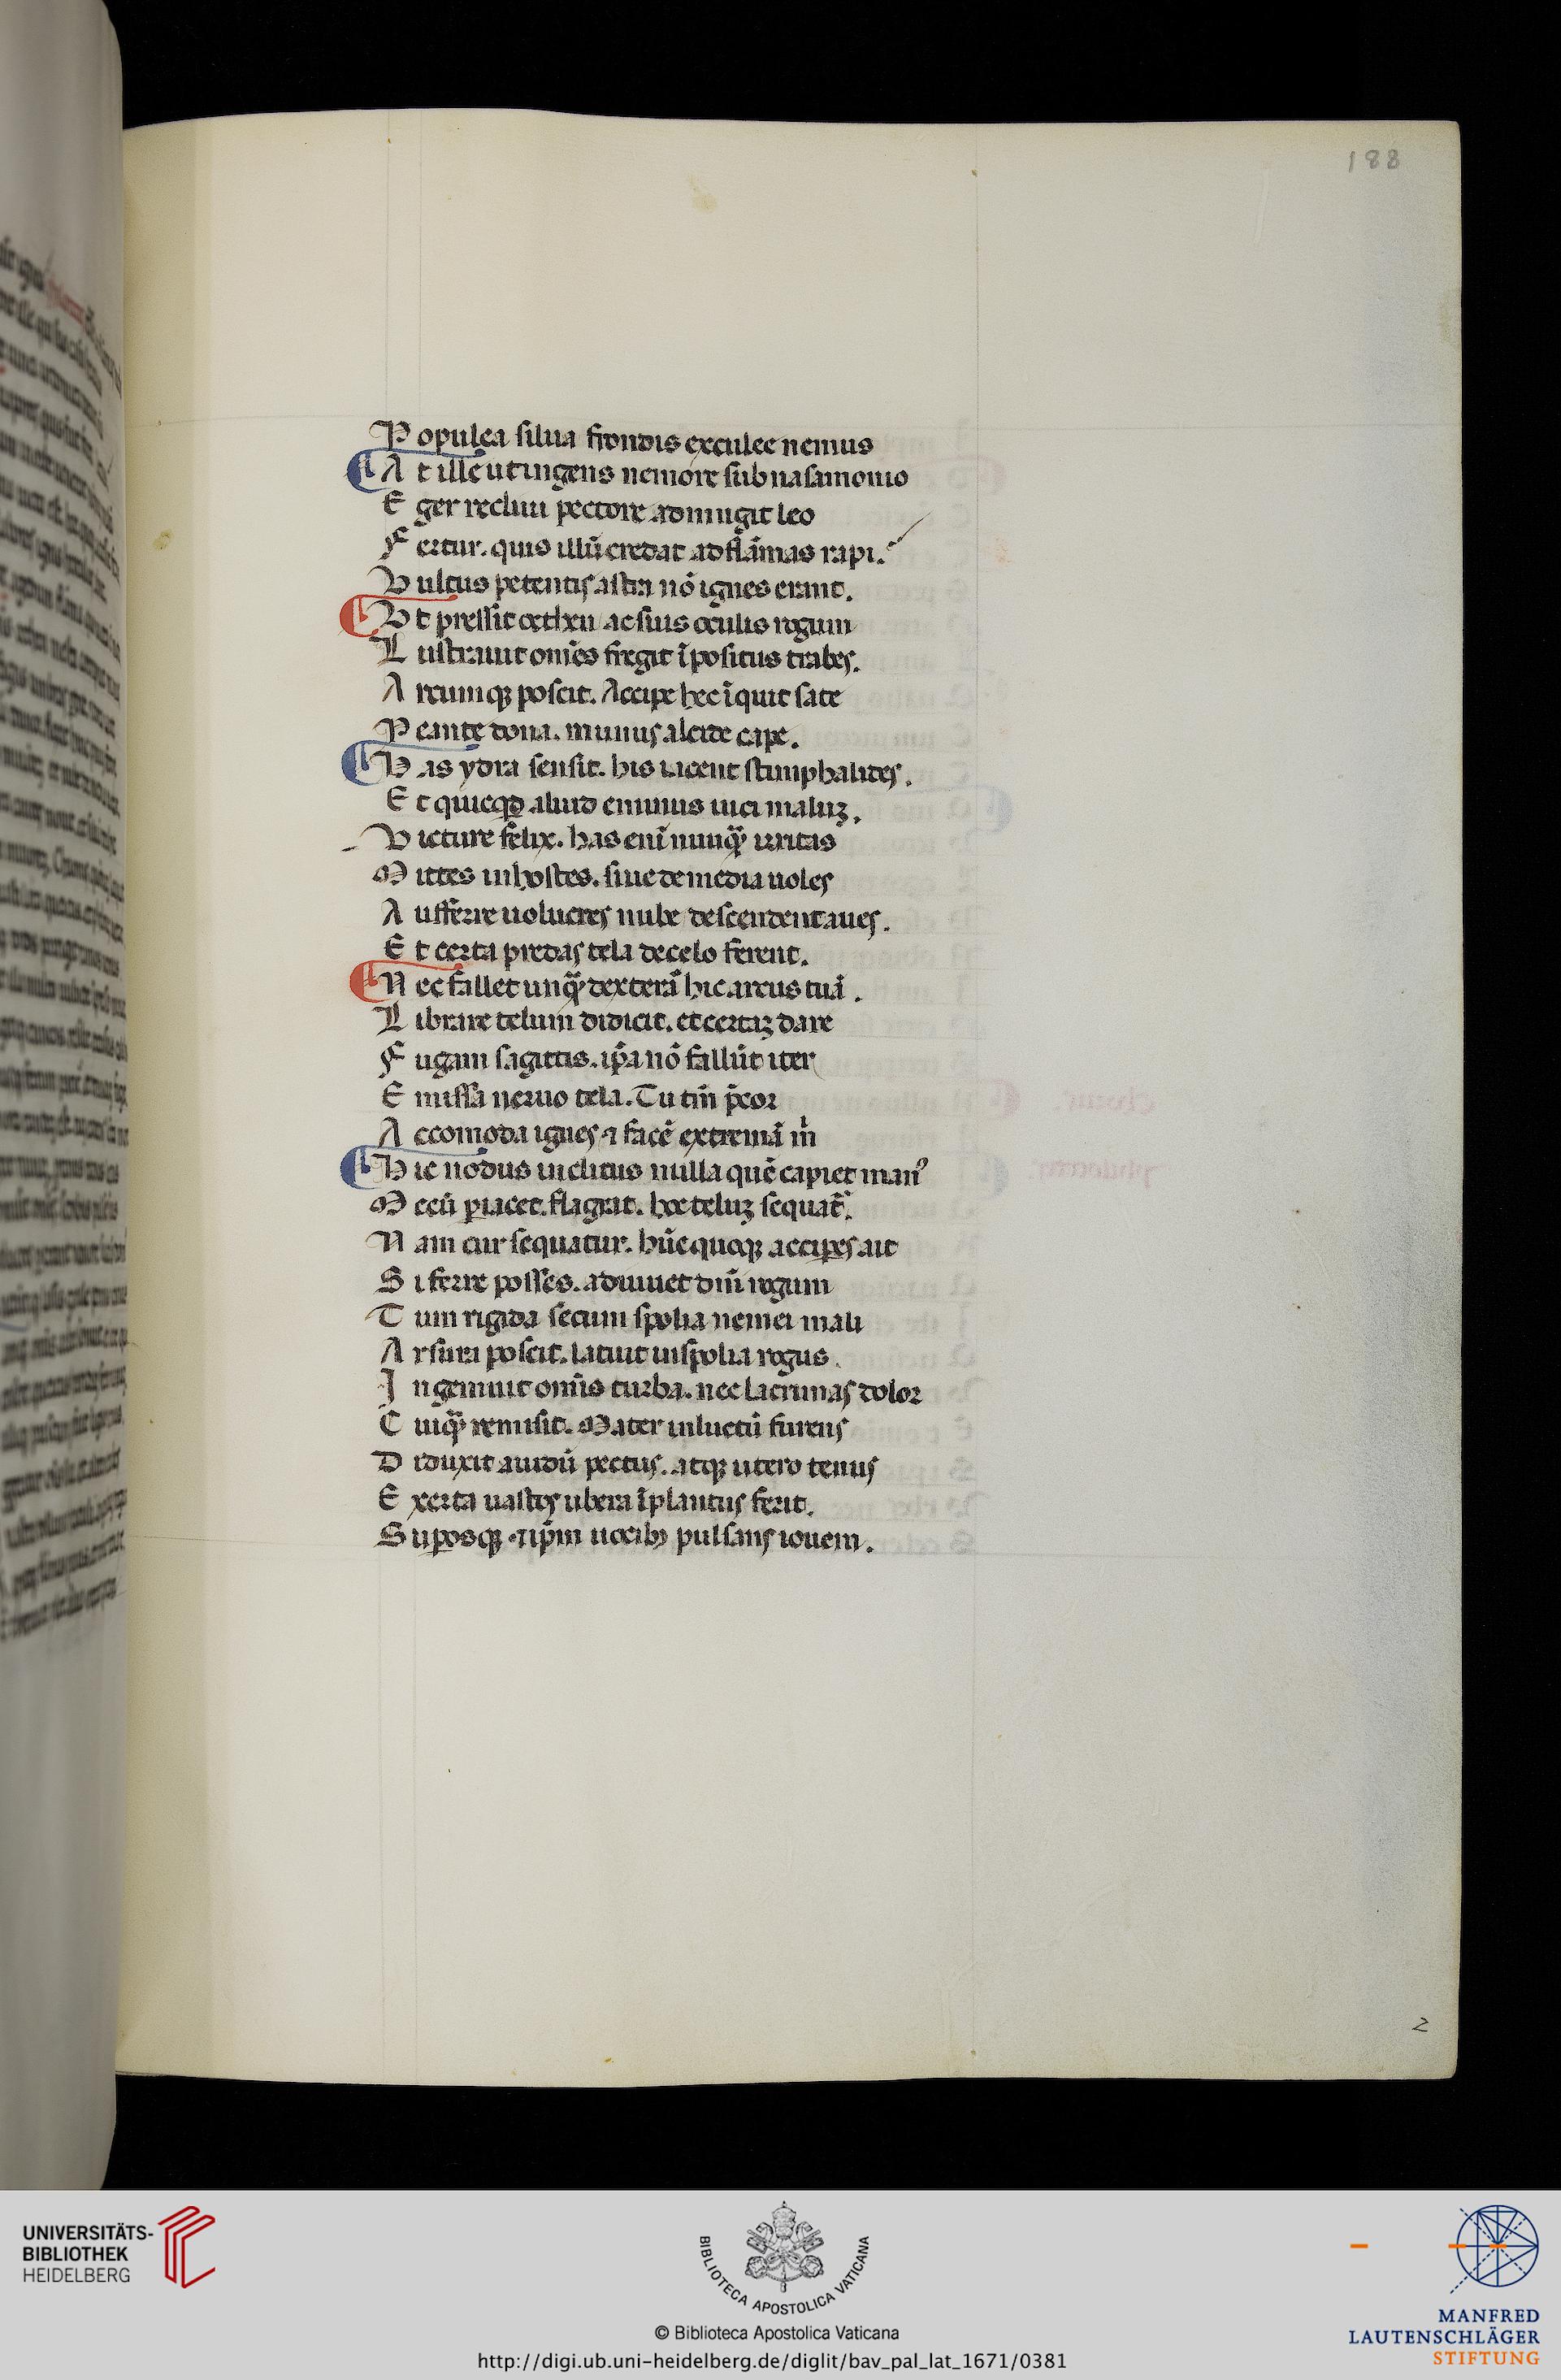 188
Populea silua frondis exculee nemus
At ille ut ingens nemore sub nasamonio
Eger recliui pectore admugit leo
Fertur. quis illū credat ad flāmas rapi.
Vultus petentis astra nō ignes erant.
Vt pressit oetheu ac suis oculis rogum
Lustrauit om̄es fregit īpositus trabes.
Arcumqꝫ poscit. Accipe hec īquit sate
Peante dona. munus alcide cape.
Has ydra sensit. his iacent stimphalides.
Et quicqd aliud eminus uici maluꝫ.
Victure felix. has enī nunqͣꝫ irritas
Mittes in hostes. siue de media uoles
Auferre uolucres nube descendent aues.
Et certa predas tela de celo ferent.
Nec fallet unqͣꝫ dexterā hic arcus tuā.
Librare telum didicit. et certaꝫ dare
Fugam sagittis. ip̄a nō fallūt iter
Emissa neruo tela. Tu tm̄ p̄cor
Accomoda ignes ⁊ facē extremā m̄
Hic nodus inclitus nulla quē capiet manꝰ
Mecū ꝑ iacet. flagrat. hoc teluꝫ sequat̄.
Nam cur sequatur. hūc quoqꝫ accipes ait
Si ferre posses. adiuuet dnī rogum
Tum rigida secum spolia nemei mali
Arsura poscit. latuit in spolia rogus.
Ingemuit om̄is turba. nec lacrimas dolor
Cuiqͣꝫ remisit. Mater in luctū furens
Diduxit auidū pectus. atqꝫ utero tenus
Exerta uastos ubera īplantus ferit.
Suꝑosqꝫ ⁊ ip̄m uocibꝫ pulsans iouem.
2
UNIVERSITÄTS-
BIBLIOTHEK
HEIDELBERG
BIBLIOTECA APOSTOLICA VATICANA
© Biblioteca Apostolica Vaticana
http://digi.ub.uni-heidelberg.de/diglit/bav_pal_lat_1671/0381
MANFRED
LAUTENSCHLÄGER
STIFTUNG